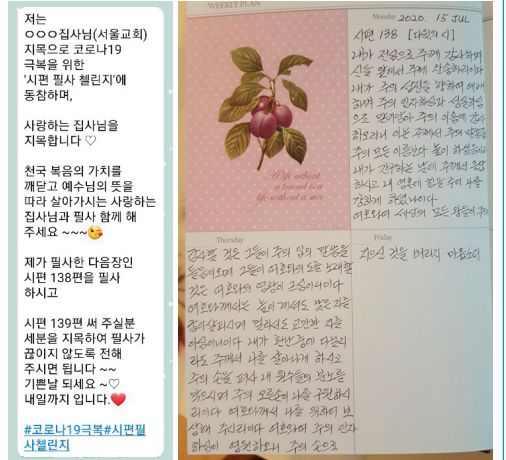 저는
ㅇㅇㅇ집사님(서울교회)
지목으로 코로나19
극복을 위한
'시편 필사 챌린지'에
동참하며,
사랑하는 집사님을
지목합니다 ♡
천국 복음의 가치를
깨닫고 예수님의 뜻을
따라 살아가시는 사랑하는
집사님과 필사 함께 해
주세요 ~~~😘
제가 필사한 다음장인
시편 138편을 필사
하시고
시편 139편 써 주실분
세분을 지목하여 필사가
끊이지 않도록 전해
주시면 됩니다 ~~
기쁜날 되세요 ~♡
내일까지 입니다.❤️
#코로나19극복#시편필
사첼린지
WEEKLY PLAN
A life without
a friend is a
life without a sun
Monday 2020. 15 JUL
시편 138 [다윗의 시]
내가 전심으로 주께 감사하며
신들 앞에서 주께 찬송하리이다
내가 주의 성전을 향하여 예배
하며 주의 인자하심과 성실하심
으로 말미암아 주의 이름에 감사
하오리니 이는 주께서 주의 말씀을
주의 모든 이름보다 높게 하셨음이라
내가 간구하는 날에 주께서 응답
하시고 내 영혼에 힘을 주어 나를
강하게 하셨나이다
여호와여 세상의 모든 왕들이 주께
Thursday
감사할 것은 그들이 주의 입의 말씀을
들음이오며 그들이 여호와의 도를 노래할
것은 여호와의 영광이 크심이니이다
여호와께서는 높이 계셔도 낮은 자를
굽어살피시며 멀리서도 교만한 자를
아심이니이다 내가 환난 중에 다닐지
라도 주께서 나를 살아나게 하시고
주의 손을 펴사 내 원수들의 분노를
막으시며 주의 오른손이 나를 구원하시
리이다 여호와께서 나를 위하여 보
상해 주시리이다 여호와여 주의 인자
하심이 영원하오니 주의 손으로
Friday
지으신 것을 버리지 마옵소서